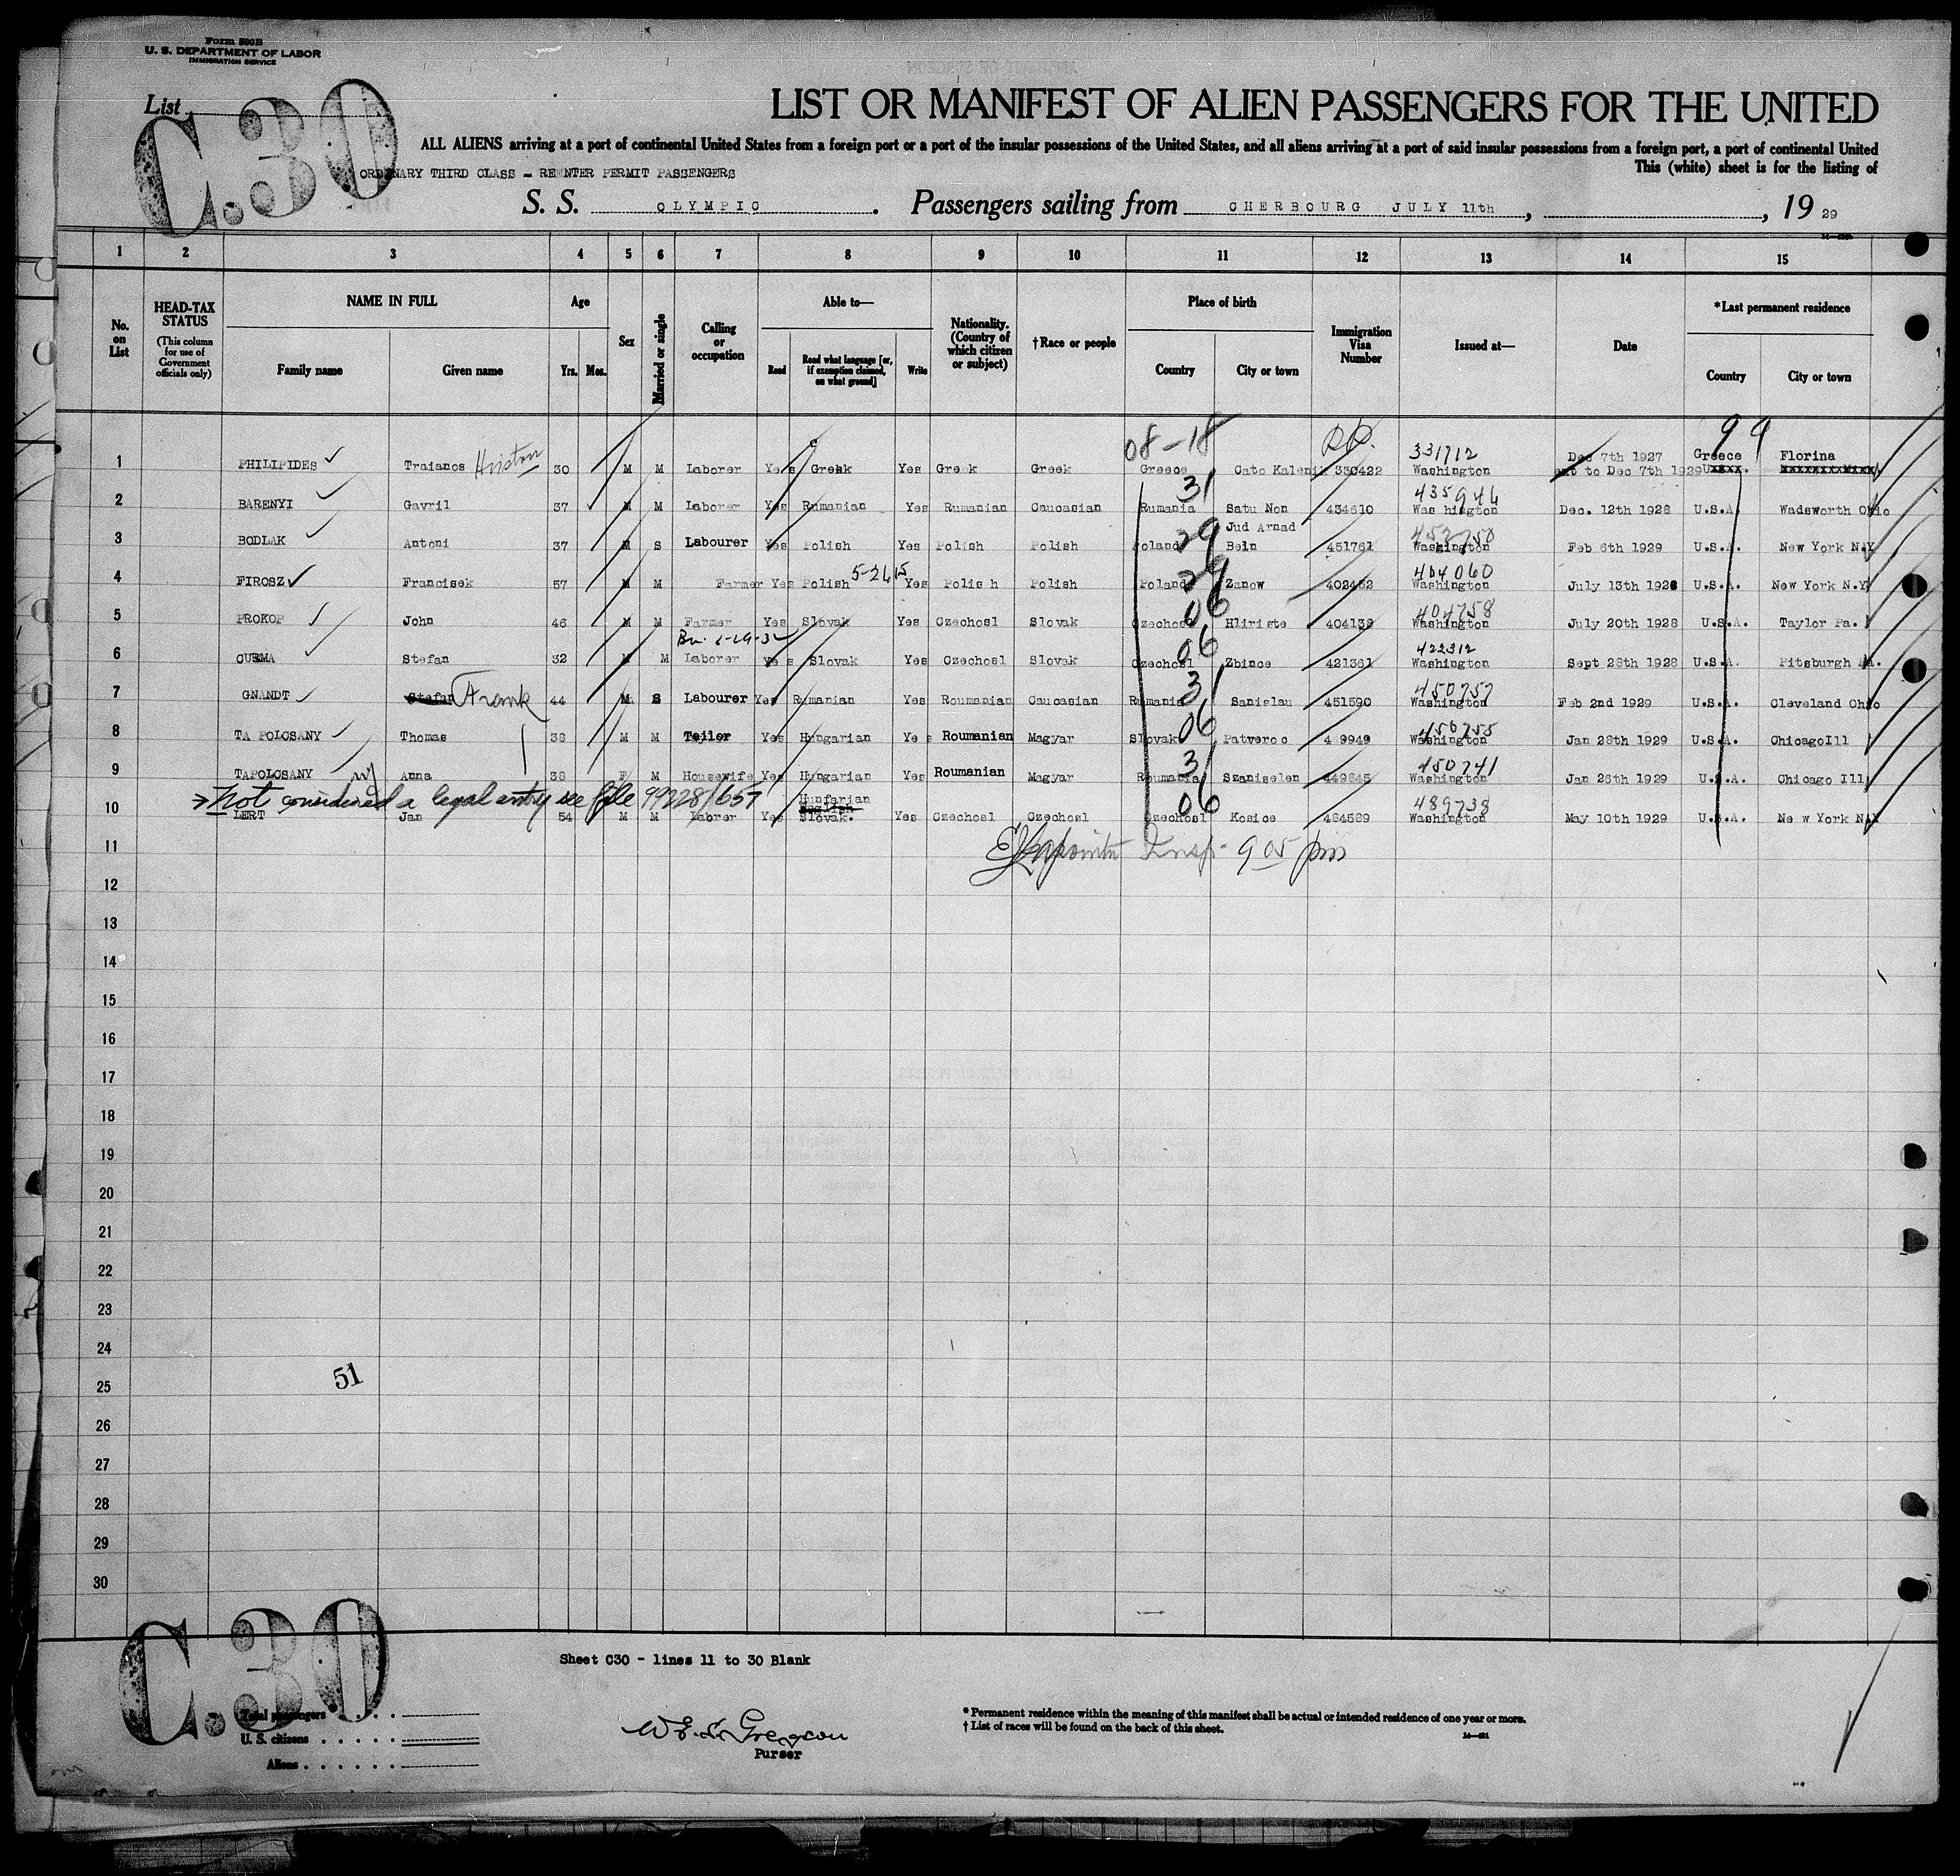 Form 500B
U. S. DEPARTMENT OF LABOR
IMMIGRATION SERVICE
List
C.30
LIST OR MANIFEST OF ALIEN PASSENGERS FOR THE UNITED
ALL ALIENS arriving at a port of continental United States from a foreign port or a port of the insular possessions of the United States, and all aliens arriving at a port of said insular possessions from a foreign port, a port of continental United
ORDINARY THIRD CLASS – REENTER PERMIT PASSENGERS This (white) sheet is for the listing of
S. S. OLYMPIC. Passengers sailing from CHERBOURG JULY 11th, , 19 29
1 2 3 4 5 6 7 8 9 10 11 12 13 14 15
No. on List
HEAD-TAX STATUS
(This column for use of Government officials only)
NAME IN FULL
Family name Given name
Age
Yrs. Mos.
Sex
Married or single
Calling or occupation
Able to—
Read Read what language [or, if exemption claimed, on what ground] Write
Nationality. (Country of which citizen or subject)
†Race or people
Place of birth
Country City or town
Immigration Visa Number
Issued at—
Date
*Last permanent residence
Country City or town
08-18 99
331712 Dec 7th 1927 Greece Florina
1 PHILIPIDES Traianos 30 M M Laborer Yes Greek Yes Greek Greek Greece Cato Kalenik 330422 Washington ext to Dec 7th 1929
31 435946
2 BARENYI Gavril 37 M M Laborer Yes Rumanian Yes Rumanian Caucasian Rumania Satu Non 434610 Was hington Dec. 12th 1928 U.S.A. Wadsworth Ohio
Jud Arnad
29 452750
3 BODLAK Antoni 37 M S Labourer Yes Polish Yes Polish Polish Poland Bein 451761 Washington Feb 6th 1929 U.S.A. New York N.Y
5-2615 29 404060
4 FIROSZ Francisek 57 M M Farmer Yes Polish Yes Polis h Polish Poland Zanow 402452 Washington July 13th 1928 U.S.A. New York N.Y
06 404758
5 PROKOP John 46 M M Farmer Yes Slovak Yes Czechosl Slovak Czechosl Hliriste 404138 Washington July 20th 1928 U.S.A. Taylor Pa.
06 422312
6 CURMA Stefan 32 M M Laborer Ye s Slovak Yes Czechosl Slovak Czechosl Zbince 421361 Washington Sept 28th 1928 U.S.A. Pitsburgh Pa.
31 450757
7 GNANDT Stefan Frank 44 M S Labourer Yes Rumanian Yes Roumanian Caucasian Rumania Sanislau 451590 Washington Feb 2nd 1929 U.S.A. Cleveland Ohio
06 450755
8 TA POLCSANY Thomas 38 M M Teilor Yes Hungarian Ye s Roumanian Magyar Slovak Patveroc 449949 Washington Jan 28th 1929 U.S.A. ChicagoIll
31 450741
9 TAPOLCSANY Anna 38 F M Housewife Yes Hungarian Yes Roumanian Magyar Roumania Szaniselen 449845 Washington Jan 26th 1929 U.S.A. Chicago Ill
Not considered a legal entry see file 99228/657 Hunfarian 06 489738
English
10 LERT Jan 54 M M Labrer Yes Slovak. Yes Czechosl Czechosl Czechosl Kosice 484589 Washington May 10th 1929 U.S.A. Ne w York N.Y
11 Insp. 9 05 pm
12
13
14
15
16
17
18
19
20
21
22
23
24
51
25
26
27
28
29
30
C.30
Sheet C30 - lines 11 to 30 Blank
Total passengers
U. S. citizens
Aliens
Purser
* Permanent residence within the meaning of this manifest shall be actual or intended residence of one year or more.
† List of races will be found on the back of this sheet.